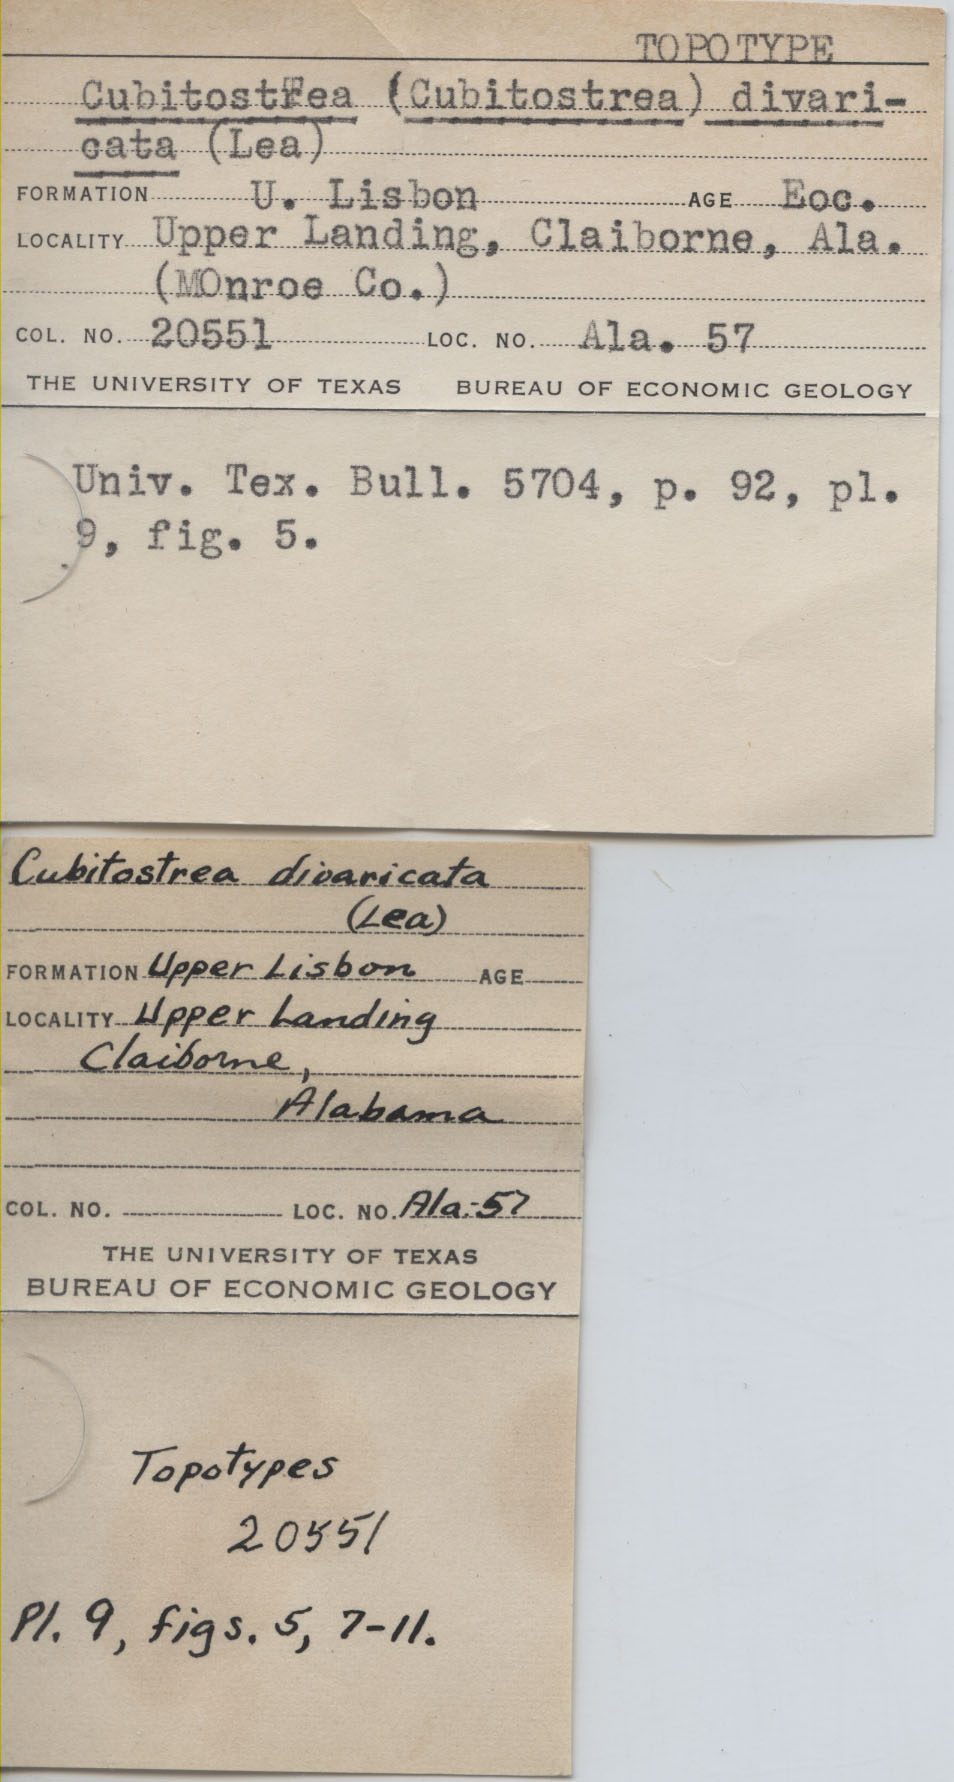 TOPOTYPE
Cubitostrea (Cubitostrea) divari-
cata (Lea)
FORMATION U. Lisbon AGE Eoc.
LOCALITY Upper Landing, Claiborne, Ala.
(MOnroe Co.)
COL. NO. 20551 LOC. NO. Ala. 57
THE UNIVERSITY OF TEXAS BUREAU OF ECONOMIC GEOLOGY
Univ. Tex. Bull. 5704, p. 92, pl.
9, fig. 5.
Cubitostrea divaricata
(Lea)
FORMATION Upper Lisbon AGE
LOCALITY Upper Landing
Claiborne,
Alabama
COL. NO. LOC. NO. Ala.-57
THE UNIVERSITY OF TEXAS
BUREAU OF ECONOMIC GEOLOGY
Topotypes
20551
Pl. 9, figs. 5, 7-11.